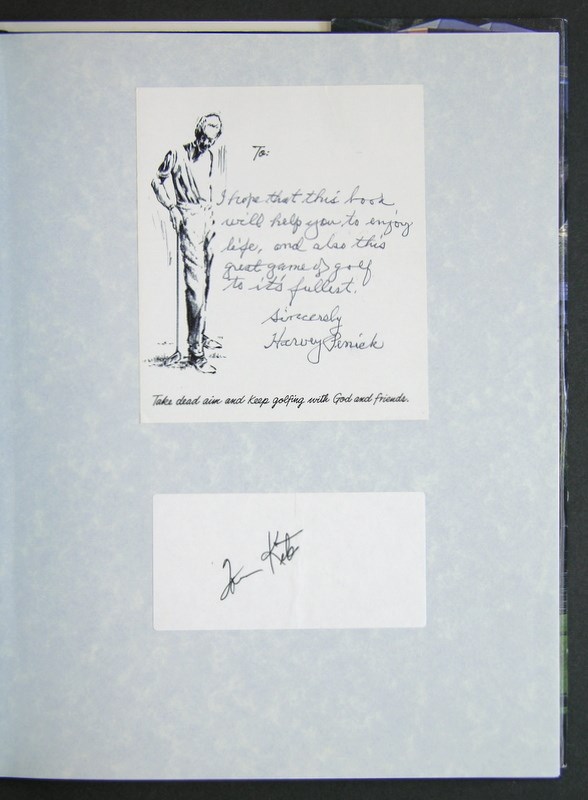 To:
I hope that this book
will help you to enjoy
life, and also this
great game of golf
to it's fullest.
Sincerely
Harvey Penick
Take dead aim and keep golfing with God and friends.
Tom Kite